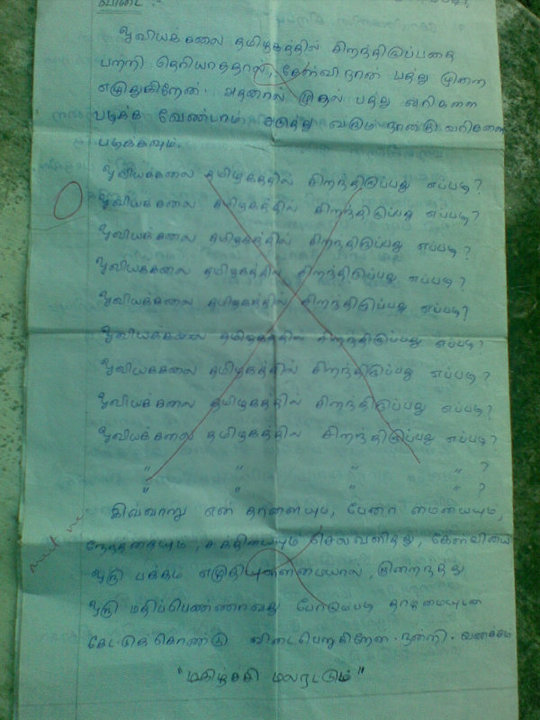 விடை :-
ஓவியக்கலை தமிழகத்தில் சிறந்திடுப்பதை
பற்றி தெரியாததால், கேள்வி நான் பத்து முறை
எழுதுகிறேன். அதனால் முதல் பத்து வரிகளை
படிக்க வேண்டாம். அடுத்து வரும் நான்கு வரிகளை
படிக்கவும்.
ஓவியக்கலை தமிழகத்தில் சிறந்திடுப்பது எப்படி?
ஓவியக்கலை தமிழகத்தில் சிறந்திடுப்பது எப்படி?
ஓவியக்கலை தமிழகத்தில் சிறந்திடுப்பது எப்படி?
ஓவியக்கலை தமிழகத்தில் சிறந்திடுப்பது எப்படி?
ஓவியக்கலை தமிழகத்தில் சிறந்திடுப்பது எப்படி?
ஓவியக்கலை தமிழகத்தில் சிறந்திடுப்பது எப்படி?
ஓவியக்கலை தமிழகத்தில் சிறந்திடுப்பது எப்படி?
ஓவியக்கலை தமிழகத்தில் சிறந்திடுப்பது எப்படி?
ஓவியக்கலை தமிழகத்தில் சிறந்திடுப்பது எப்படி?
" " " " ?
" " " " ?
இவ்வாறு என் தாளையும், பேனா மையையும்,
நேரத்தையும், சக்தியையும் செலவளித்து, கேள்வியை
ஒரு பக்கம் எழுதியுள்ளமையால், குறைந்தது
ஒரு மதிப்பெண்ணாவது போடும்படி தாழ்மையுடன்
கேட்டுக்கொண்டு விடைபெறுகிறேன். நன்றி. வணக்கம்
"மகிழ்ச்சி மலரட்டும்"